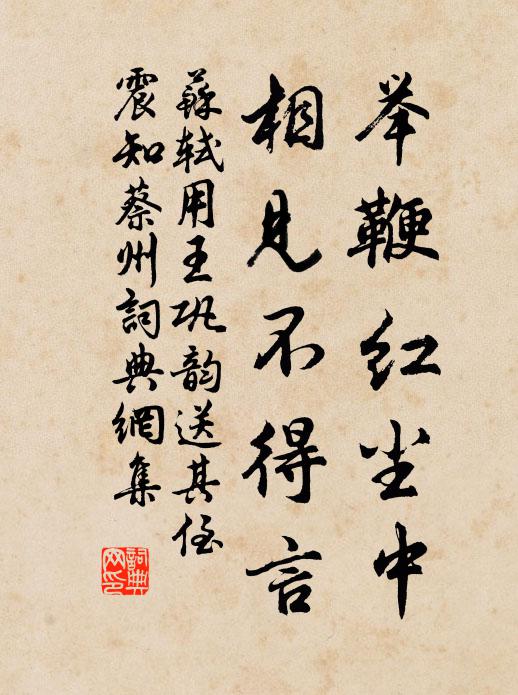 举鞭红尘中
相见不得言
蘇轼用王巩韵送其侄
震知蔡州詞典網集
詞典
网印